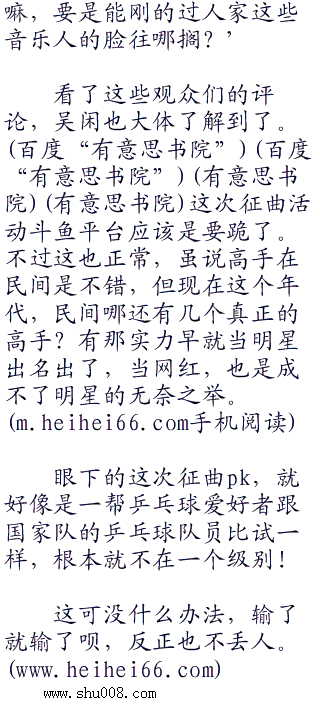 嘛，要是能刚的过人家这些
音乐人的脸往哪搁？’
看了这些观众们的评
论，吴闲也大体了解到了。
(百度“有意思书院”)(百度
“有意思书院”)(有意思书
院)(有意思书院)这次征曲活
动斗鱼平台应该是要跪了。
不过这也正常，虽说高手在
民间是不错，但现在这个年
代，民间哪还有几个真正的
高手？有那实力早就当明星
出名出了，当网红，也是成
不了明星的无奈之举。
(m.heihei66.com手机阅读)
眼下的这次征曲pk，就
好像是一帮乒乓球爱好者跟
国家队的乒乓球队员比试一
样，根本就不在一个级别！
这可没什么办法，输了
就输了呗，反正也不丢人。
(www.heihei66.com)
www.shu008.com